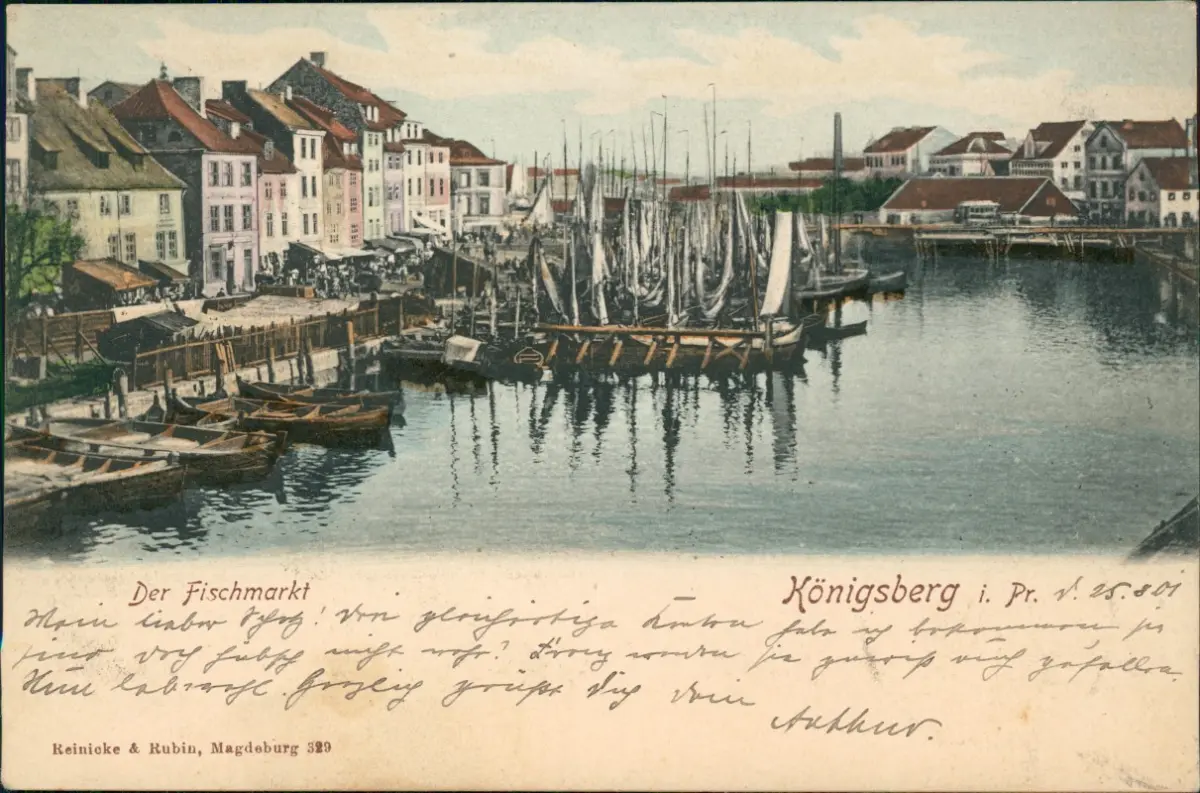 Der Fischmarkt
Königsberg i. Pr. d. 25.8.01
Mein lieber Schatz! Drei gleichartige Karten habe ich bekommen sie
sind doch hübsch nicht wahr? werden sie gewiß auch gefallen.
Nun lebewohl. Herzlich grüßt Dich Dein
Arthur.
Reinicke & Rubin, Magdeburg 329